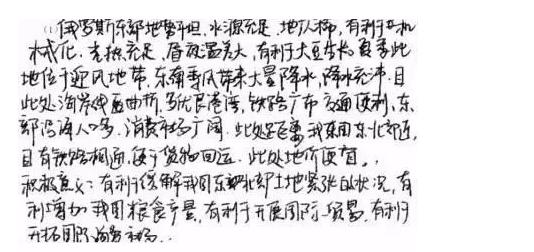 (1)俄罗斯东部地势平坦,水源充足,地广人稀,有利于机
械化。光热充足,昼夜温差大,有利于大豆生长。夏季此
地位于迎风地带,东南季风带来大量降水,降水充沛。且
此处海岸线曲折,多优良港湾,铁路广布,交通便利,东
部沿海人口多,消费市场广阔。此处距离我国东北部近,
且有铁路相通,便于货物回运。此处地价便宜。
积极意义:有利于缓解我国东北部土地紧张的状况,有
利增加我国粮食产量,有利于开展国际贸易,有利于
开拓国际市场。